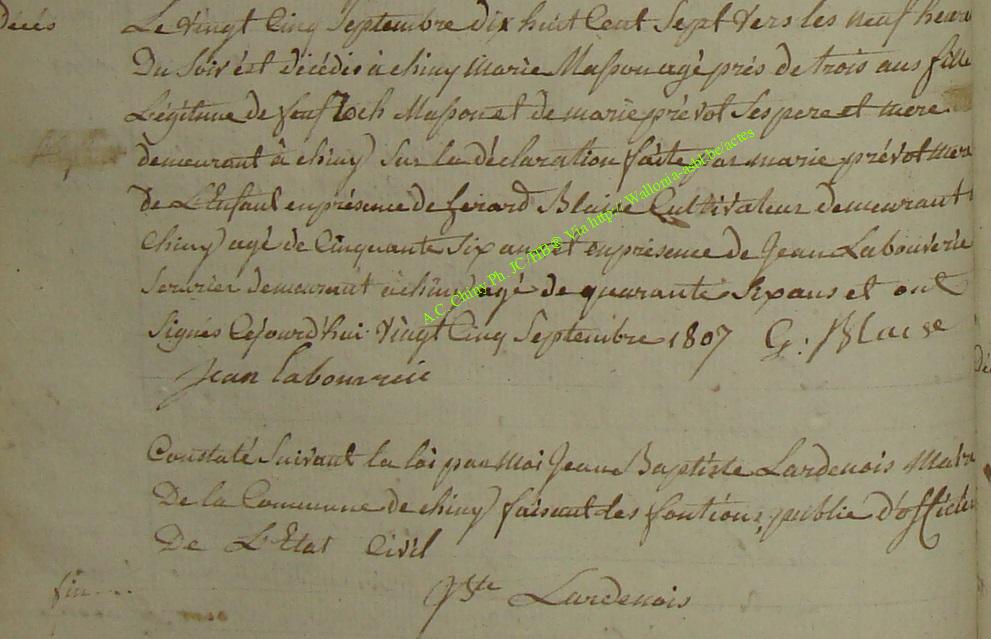 Décès
Le vingt Cinq Septembre dix huit Cent Sept vers les neuf heures
Du Soir est décédés à chiny Marie Masson agé prés de trois ans fille
Légitime de feu Roch Masson et de marie prévot Ses pere et mere
demeurant à chiny Sur la déclaration faite par marie prévot mere
de L'Enfant en présence de Blaise Cultivateur demeurant
Chiny agé de Cinquante Six ans et en présence de Jean Labouverie
demeurant à chiny agé de quarante Six ans et ont
Signés Cejourd'hui vingt Cinq Septembre 1807 G: Blaise
Jean labouverie
Constaté Suivant la loi par Moi Jean Baptiste Lardenois Maire
De la Commune de chiny faisant les fontions publie d'officier
De L'Etat Civil
fin....
Lardenois
A.C. Chiny Ph. JC/HB® Via https:/Wallonia-asbl.be/actes